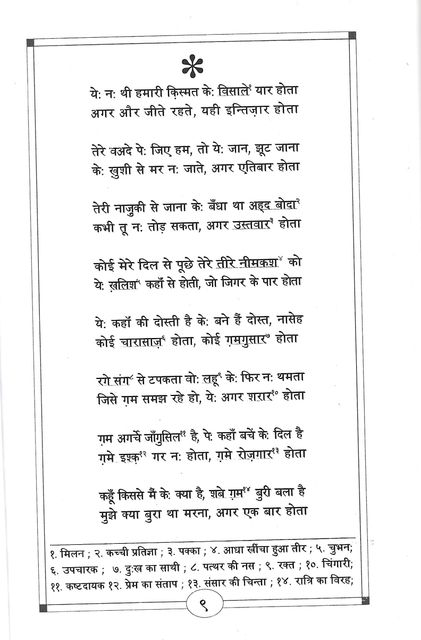 ये: न: थी हमारी क़िस्मत के: विसाले¹ यार होता
अगर और जीते रहते, यही इन्तिज़ार होता
तेरे वअदे पे: जिए हम, तो ये: जान, झूट जाना
के: ख़ुशी से मर न: जाते, अगर एतिबार होता
तेरी नाज़ुकी से जाना के: बँधा था अह्द बोदा²
कभी तू न: तोड़ सकता, अगर उस्तवार³ होता
कोई मेरे दिल से पूछे तेरे तीरे नीमकश⁴ को
ये: ख़लिश⁵ कहाँ से होती, जो जिगर के पार होता
ये: कहाँ की दोस्ती है के: बने हैं दोस्त, नासेह
कोई चारासाज़⁶ होता, कोई ग़मगुसार⁷ होता
रगे संग⁸ से टपकता वो: लहू⁹ के: फिर न: थमता
जिसे ग़म समझ रहे हो, ये: अगर शरार¹⁰ होता
ग़म अगर्चे जाँगुसिल¹¹ है, पे: कहाँ बचें के: दिल है
ग़मे इश्क़¹² गर न: होता, ग़मे रोज़गार¹³ होता
कहूँ किससे मैं के: क्या है, शबे ग़म¹⁴ बुरी बला है
मुझे क्या बुरा था मरना, अगर एक बार होता
१. मिलन ; २. कच्ची प्रतिज्ञा ; ३. पक्का ; ४. आधा खींचा हुआ तीर ; ५. चुभन;
६. उपचारक ; ७. दुःख का साथी ; ८. पत्थर की नस ; ९. रक्त ; १०. चिंगारी;
११. कष्टदायक १२. प्रेम का संताप ; १३. संसार की चिन्ता ; १४. रात्रि का विरह;
९